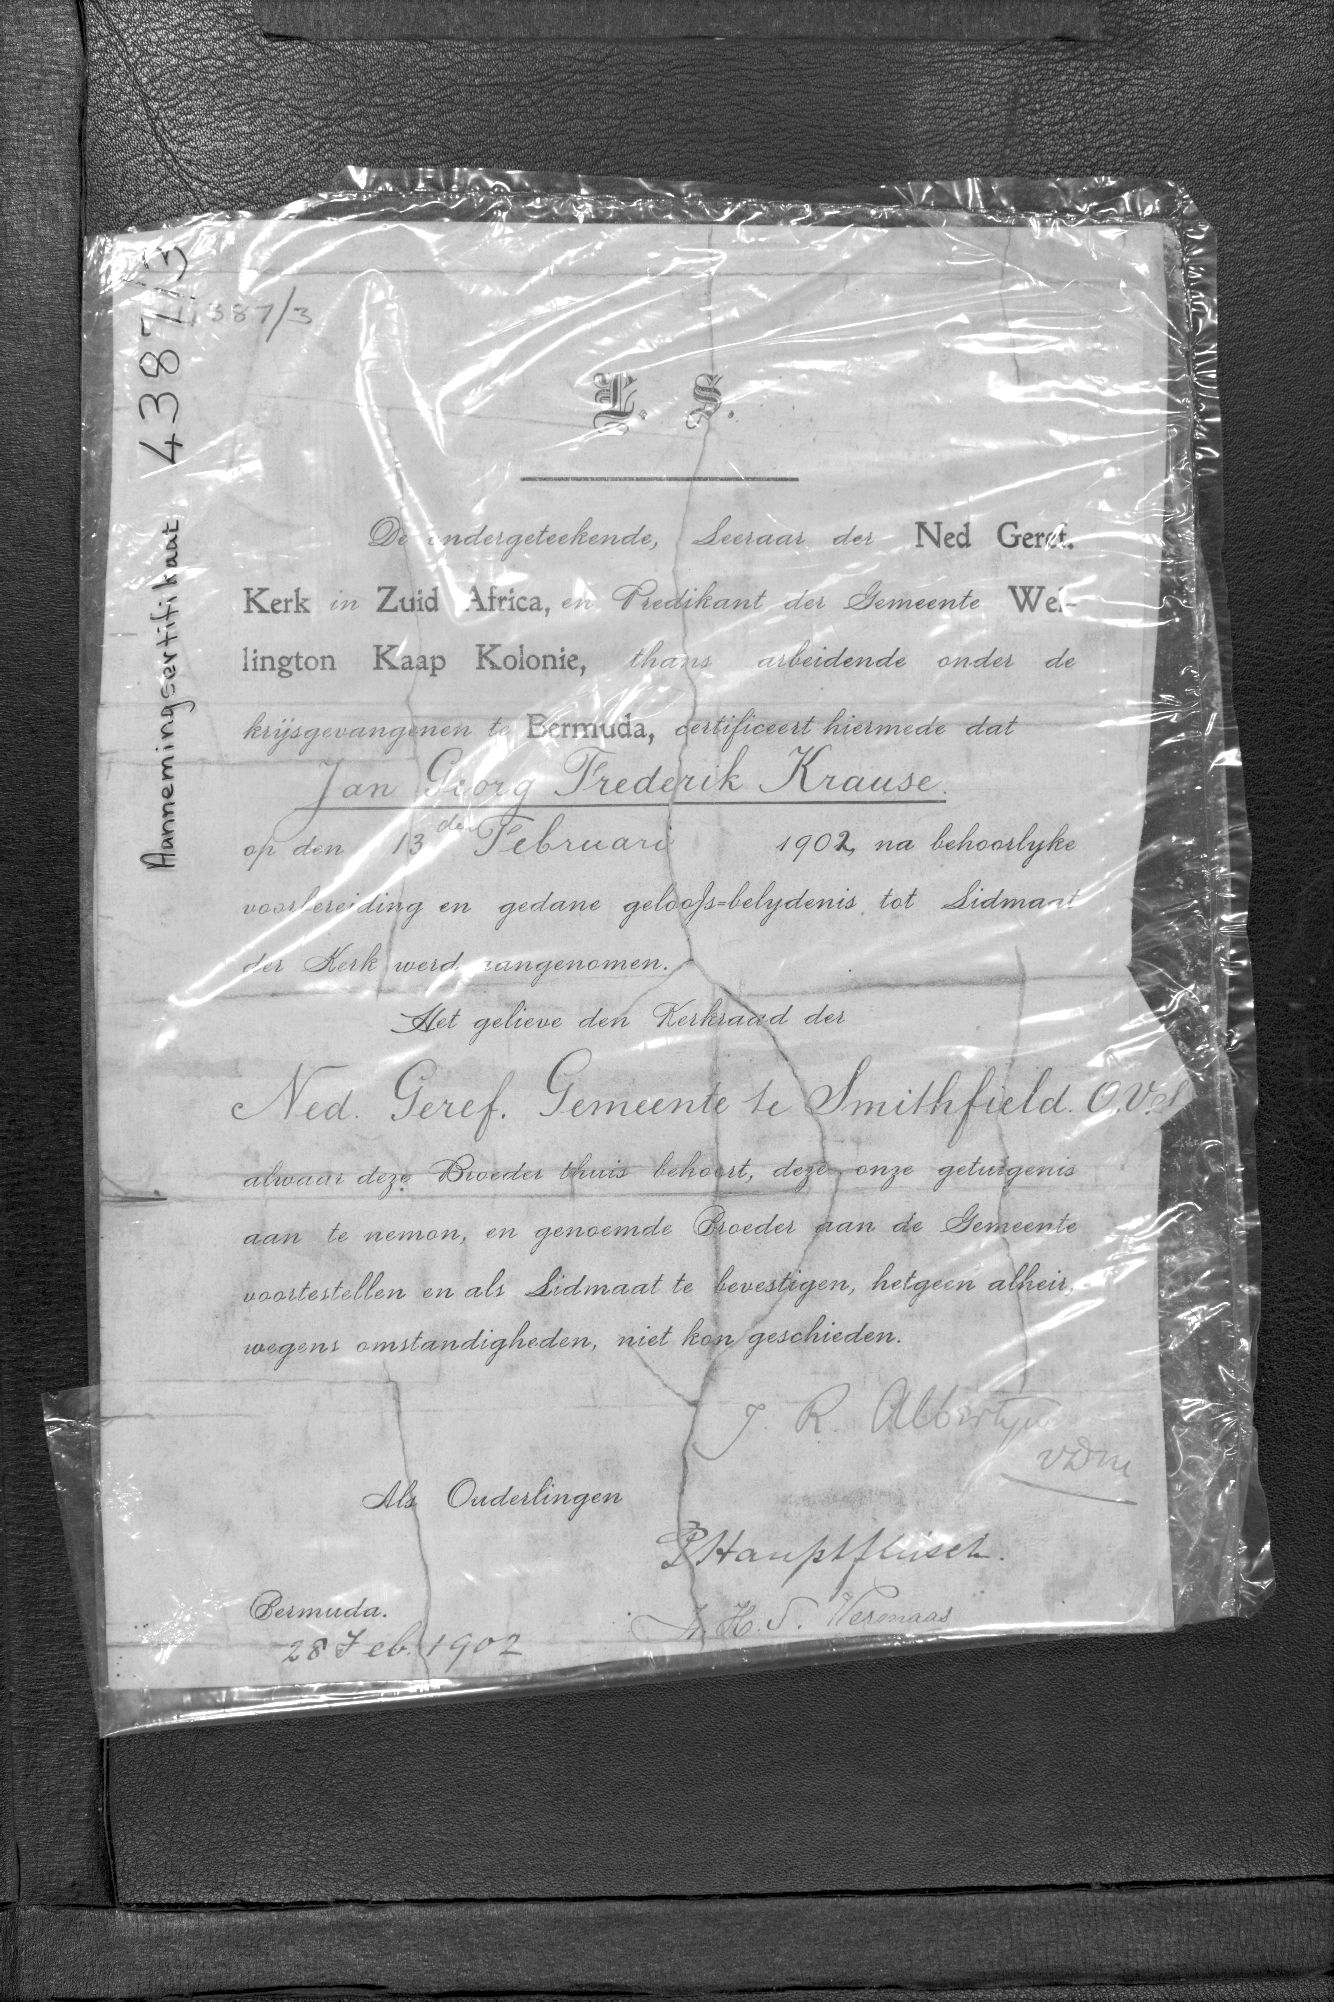 4387/3
Aannemingsertifikaat 4387/3
L. S.
De ondergeteekende, Leeraar der Ned Geref.
Kerk in Zuid Africa, en Predikant der Gemeente Wel-
lington Kaap Kolonie, thans arbeidende onder de
krijsgevangenen te Bermuda, certificeert hiermede dat
Jan Georg Frederik Krause.
op den 13den Februari 1902, na behoorlyke
voorbereiding en gedane geloofs=belydenis tot Lidmaat
der Kerk werd aangenomen.
Het gelieve den Kerkraad der
Ned. Geref. Gemeente te Smithfield. O.V.S
alwaar deze Broeder thuis behoort, deze onze getuigenis
aan te nemon, en genoemde Broeder aan de Gemeente
voortestellen en als Lidmaat te bevestigen, hetgeen alheir,
wegens omstandigheden, niet kon geschieden.
J. R. Albertyn
VDM
Als Ouderlingen
P Hauptfleisch.
Bermuda.
H. S. Vermaas
28 Feb. 1902